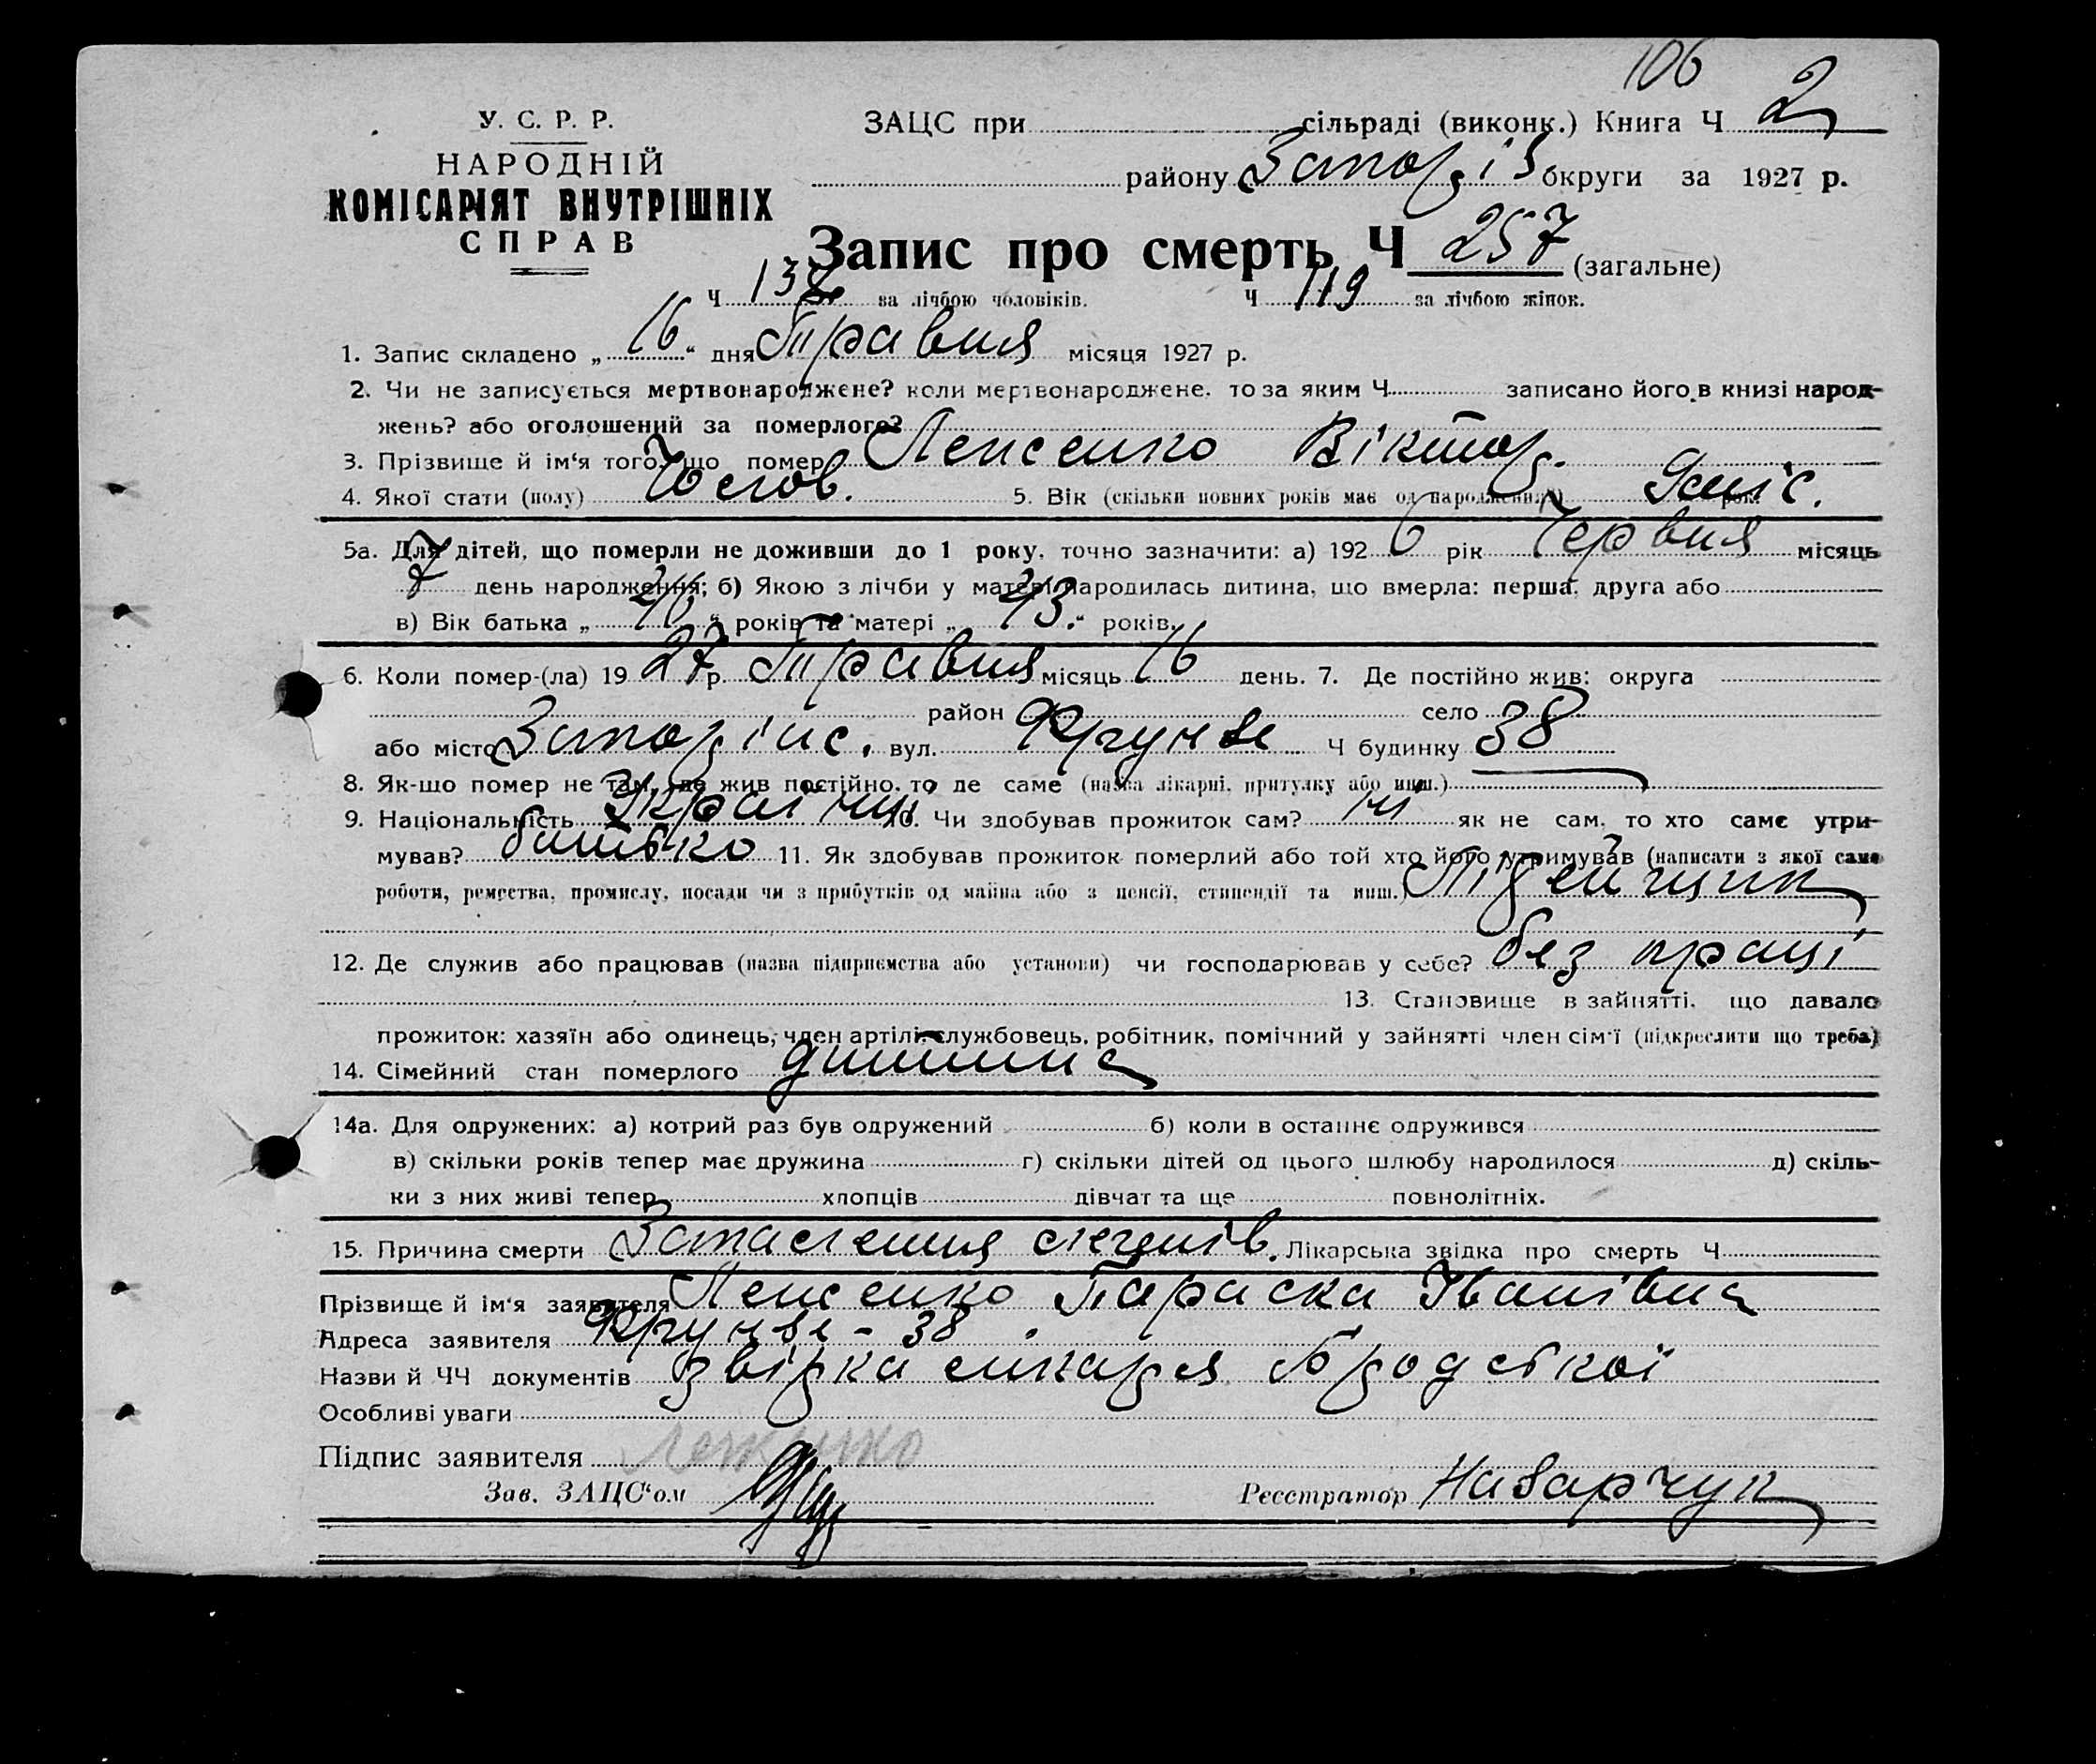 106
У. С. Р. Р.
НАРОДНІЙ
КОМІСАРІЯТ ВНУТРІШНІХ
СПРАВ
ЗАЦС при сільраді (виконк.) Книга Ч 2
району Запоріз округи за 1927 р.
Запис про смерть Ч 257 (загальне)
Ч 138 за лічбою чоловіків. Ч 119 за лічбою жінок.
1. Запис складено „ 16 “ дня Травня місяця 1927 р.
2. Чи не записується мертвонароджене? коли мертвонароджене, то за яким Ч записано його в книзі народ-
жень? або оголошений за померлого?
3. Прізвище й ім‘я того, що помер Віктор.
4. Якої стати (полу) Чолов. 5. Вік (скільки повних років має од народження?) рок.
5а. Для дітей, що померли не доживши до 1 року, точно зазначити: а) 192 6 рік Червня місяць
7 день народження; б) Якою з лічби у матері народилась дитина, що вмерла: перша, друга або
в) Вік батька „ “ років та матері „ “ років.
6. Коли помер-(ла) 19 27 р. Травня місяць 16 день. 7. Де постійно жив: округа
район село
або місто вул. Фрунзе Ч будинку 38
8. Як-що помер не там, де жив постійно, то де саме (назва лікарні, притулку або инш.)
9. Національність 10. Чи здобував прожиток сам? ні як не сам, то хто саме утри-
мував? батько 11. Як здобував прожиток померлий або той хто його утримував (написати з якої саме
роботи, ремества, промислу, посади чи з прибутків од майна або з пенсії, стипендії та инш.)
12. Де служив або працював (назва підприємства або установи) чи господарював у себе? без праці
13. Становище в зайнятті, що давало
прожиток: хазяїн або одинець, член артілі, службовець, робітник, помічний у зайнятті член сім‘ї (підкреслити що треба)
14. Сімейний стан померлого дитина
14а. Для одружених: а) котрий раз був одружений б) коли в останнє одружився
в) скільки років тепер має дружина г) скільки дітей од цього шлюбу народилося д) скіль-
ки з них живі тепер хлопців дівчат та ще повнолітніх.
15. Причина смерти Запалення легенів. Лікарська звідка про смерть Ч
Прізвище й ім‘я заявителя Параска Іванівна
Адреса заявителя Фрунзе - 38
Назви й ЧЧ документів лікаря Бродської
Особливі уваги
Підпис заявителя
Зав. ЗАЦС‘ом
Реєстратор Назарчук